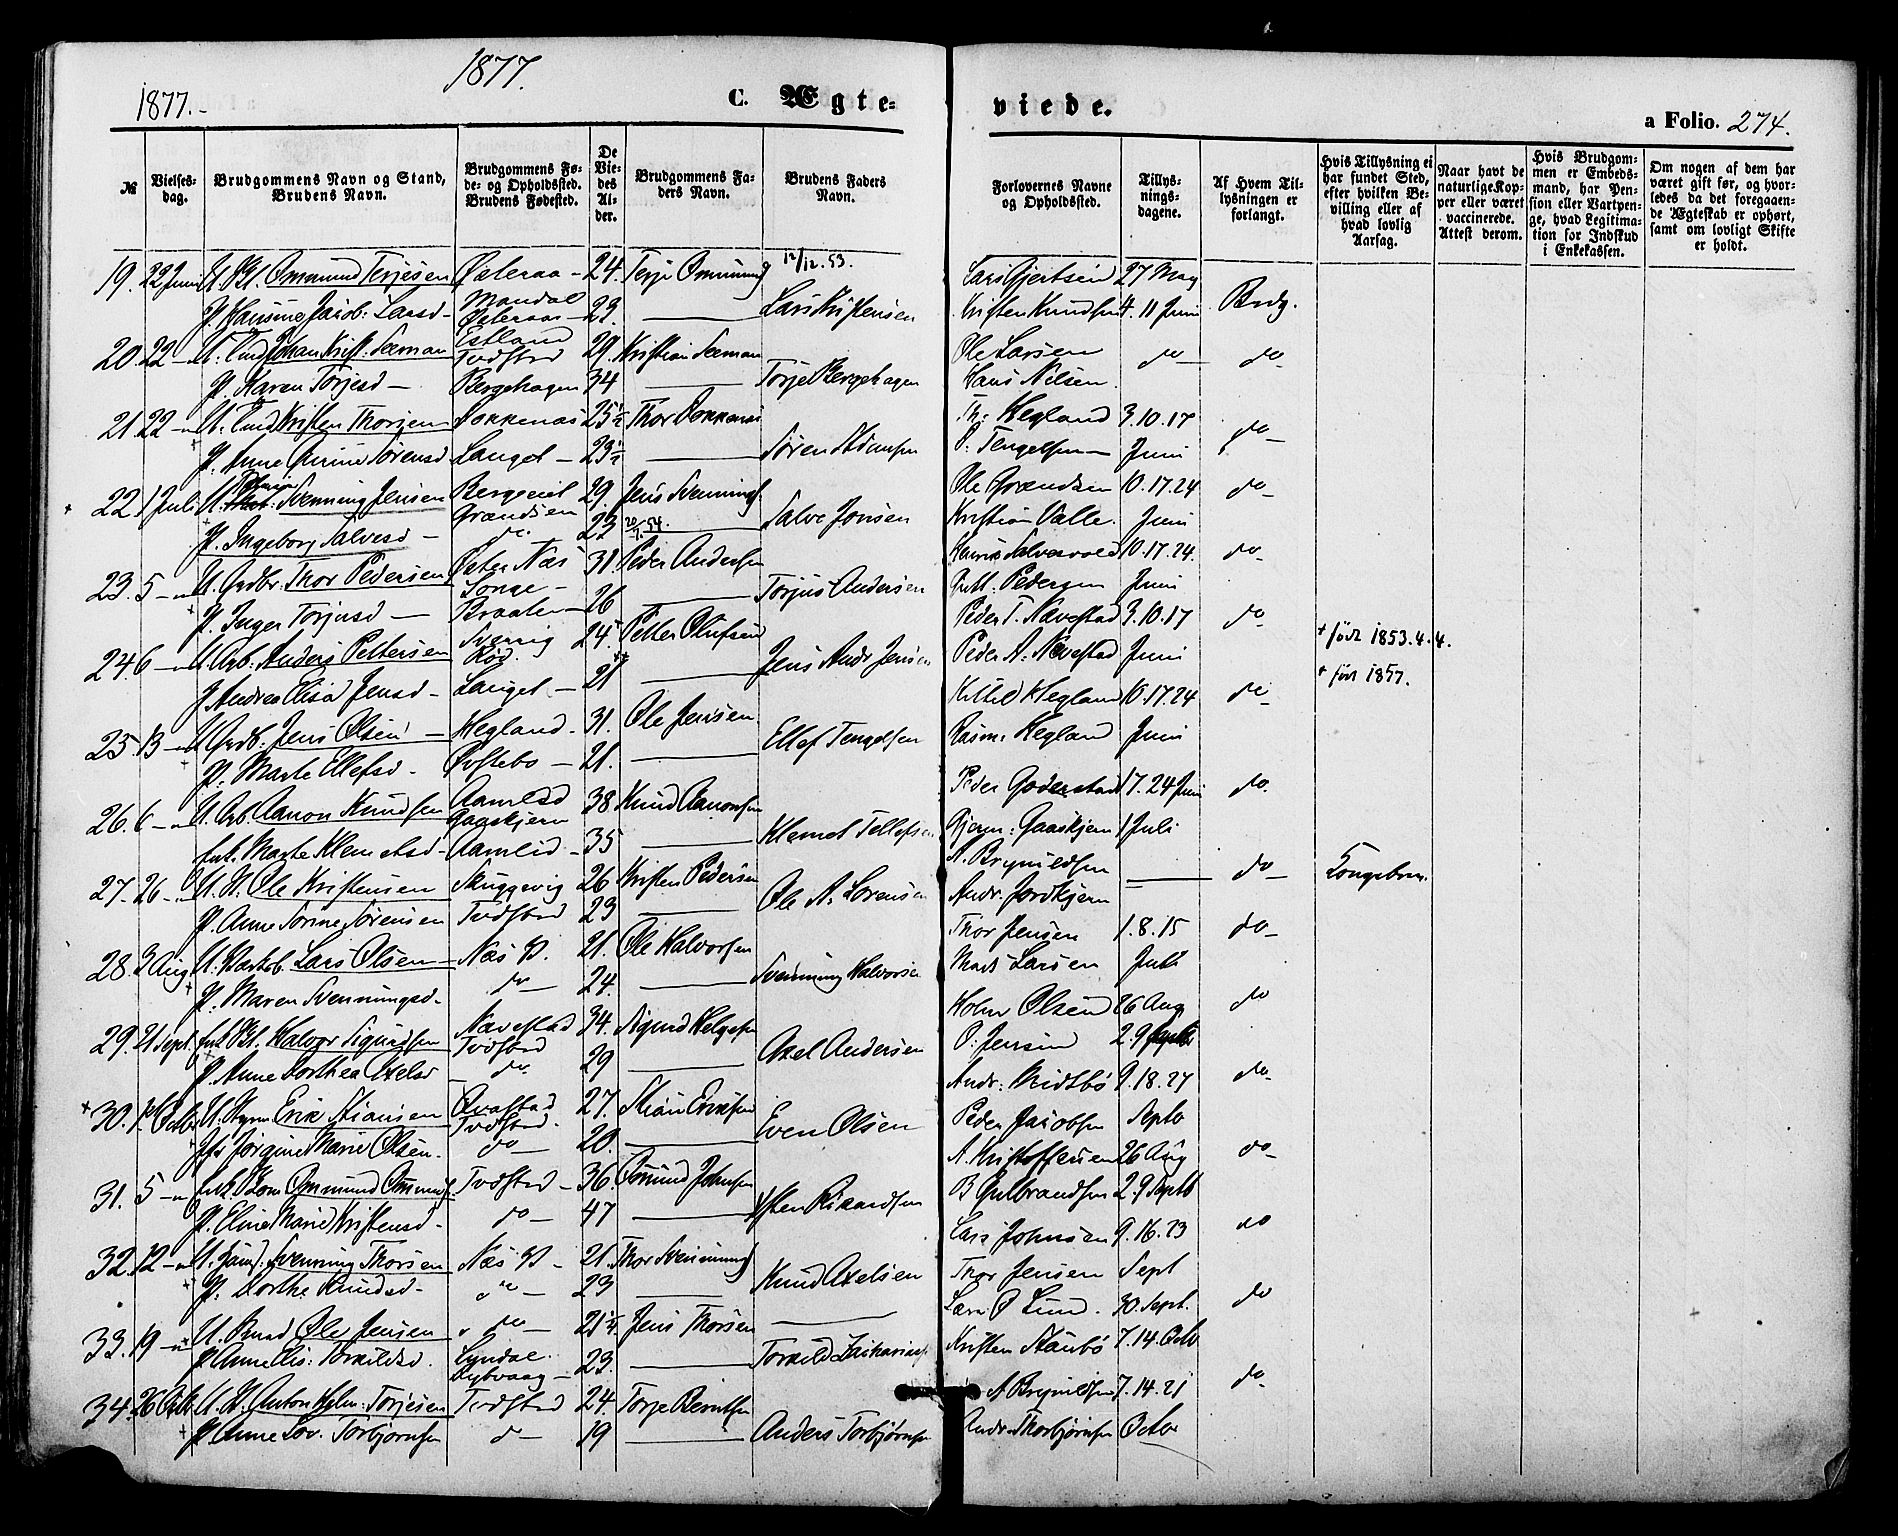 1877.
1877.-
C. Ægte-
viede.
a Folio. 274.
№
Vielses-
dag.
Brudgommens Navn og Stand,
Brudens Navn.
Brudgommens Fø-
de- og Opholdssted.
Brudens Fødested.
De
Vie-
des
Al-
der.
Brudgommens Fa-
ders Navn.
Brudens Faders
Navn.
Forlovernes Navne
og Opholdssted.
Tillys-
nings-
dagene.
Af Hvem Til-
lysningen er
forlangt.
Hvis Tillysning ei
har fundet Sted,
efter hvilken Be-
villing eller af
hvad lovlig
Aarsag.
Naar havt de
naturlige Kop-
per eller været
vaccinerede.
Attest derom.
Hvis Brudgom-
men er Embeds-
mand, har Pen-
sion eller Vartpen-
ge, hvad Legitima-
tion for Indskud
i Enkekassen.
Om nogen af dem har
været gift før, og hvor-
ledes da det foregaaen-
de Ægteskab er ophørt,
samt om lovligt Skifte
er holdt.
19. 22 Juni Ommund Terjesen Østeraa - 24. Terje Ommunds 12/12.53. Lars Gjertsen 27 May
P. Hansine Jacob: Larsd - Mandal Østeraa - 23. Lars Kristensen Kristen Knudsen 4. 11 Juni Brdg.
20. 22 - U. Johan Krist. Seeman Estland Tvdstrd 29. Kristian Seeman Ole Larsen do do
P. Karen Torjesd - Bergehagen 34 Torje Bergehagen Hans Nilsen
21. 22 - U. Kristen Thorsen Dokkenas 25½ Thor Dokkenas Th: Hegland 3.10.17
P. Anne Gurine Sørensd Langel - 23½ Søren Adamsen O. Tengelsen Juni do -
22. 1 Juli U. Svenning Jensen Bergeeiet Grændsen 29. Jens Svennings Ole Grændsen 10.17.24 do -
P. Ingeborg Salvesd - do. 23 Salve Jonsen Kristian Valle. Juni
23. 5 - U. Grdbr. Thor Pedersen Øster Næs Songe - 31 Peder Andersen Henrik Salvesvold 10.17.24. do -
P. Inger Torjusd - Braaten - 26 Torjus Andersen Pedersen Juni
24. 6 - U. Arb. Anders Pettersen Sverrig Rød. 24. Petter Olufsen Peder T. Navestad 3.10.17 do - + født 1853.4.4.
P. Andrea Elisa Jensd - Langel - 21 Jens Andr Jensen Peder A. Navestad Juni + født 1857.
25. 13 - U. Grdb. Jens Olsen - Hegland. 31. Ole Jensen. Kittel Hegland 10.17.24 do -
P. Marte Ellefsd - Østebo - 21. Ellef Tengelsen Rasm. Hegland Juni
26. 6 - U. Arb. Aanon Knudsen Gaaskjern 38 Knud Aanonsen Peder Goderstad 17.24 Juni do.
Enk. Marte Klemetsd - Aamlid - 35 Klemet Tellefsen Gjerm: Gaaskjern 1 Juli
27. 26 - U. Ole Kristensen Skuggevig 26 Kristen Pedersen A. Brynildsen do - Kongebrev.
P. Anne Sorine Sørensen Tvdstrd 23 Ole A. Sørensen Andr. Jordkjern
28. 3 Aug U. Lars Olsen Næs V. 21. Ole Halvorsen Thor Jensen 1.8.15 do -
P. Maren Svenningsd. do - 24. Svenning Halvorsen Mads Larsen Juli
29. 21 Sept. Enk. Halvor Sigurdsen Navestad Tvdstrd 34. Sigurd Helgesen Holm Olsen 26 Aug do
P. Anne Dorthea Axelsd do. 29 Axel Andersen O. Jensen 2.9 Septb
+ 30. Octb. U. Styrm Erik Stiansen Qvastad Tvdstrd. 27. Stian Eriksen Andr: Midtbø 9.18.27 do -
Jørgine Marie Olsen. do 20. Even Olsen Peder Jacobsen Septb
31. 5 - Enk. Ommund Ommunds Tvdstrd - 36. Omund Johnsen A. Kristoffersen 26 Aug do -
P. Eline Marie Kristensd. do - 47 Rikardsen B Gulbrandsen 2.9 Septb
32. 12 - U. Svenning Thorsen Næs V. 21. Thor Svennings Lars Johnsen 9.16.23 do
P. Dorthe Knudsd - " - 23 Knud Axelsen Thor Jensen Sept
33. 19 - U. Ole Jensen " do - 21¼ Jens Thorsen Lars O Lund. 30. Sept. do
P. Anne Lis: Torkildsd. Lyndal. Dybvaag - 23. Torkild Zachariass Kristen Staubø 7.14. Octb
34. 26 Octb. U. Anton Hjlm. Torjesen Tvdstrd 24. Torje Berntsen A Brynildsen 7.14.21 do -
P Anne Lov. Torbjørnsen do - 19 Anders Torbjørnsen Andr. Thorbjørnsen Octbr